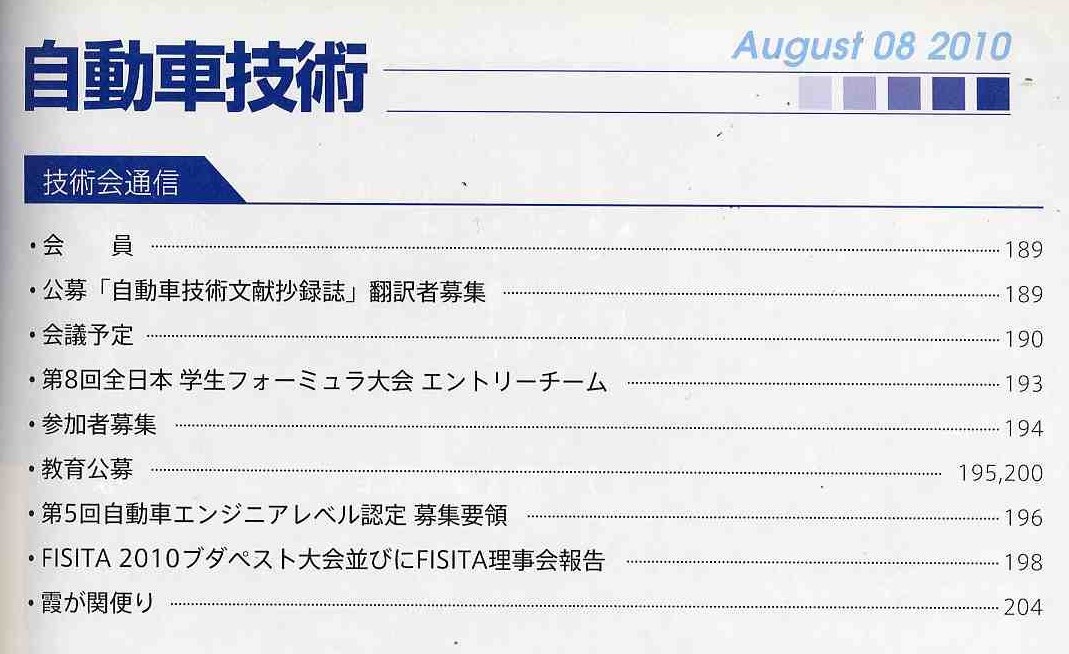 自動車技術
August 08 2010
技術会通信
・会　　員 189
・公募「自動車技術文献抄録誌」翻訳者募集 189
・会議予定 190
・第8回全日本 学生フォーミュラ大会 エントリーチーム 193
・参加者募集 194
・教育公募 195,200
・第5回自動車エンジニアレベル認定 募集要領 196
・FISITA 2010ブダペスト大会並びにFISITA理事会報告 198
・霞が関便り 204